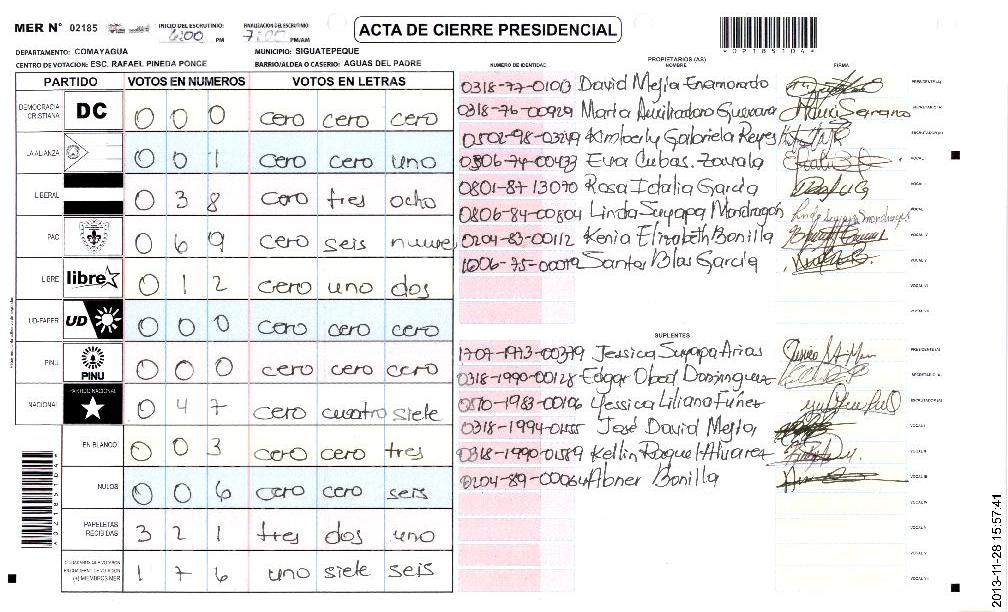 MER N° 02185 INICIO DEL ESCRUTINIO: 6:00 PM FINALIZACION DEL ESCRUTINIO: PM/AM
ACTA DE CIERRE PRESIDENCIAL
*02185104*
DEPARTAMENTO: COMAYAGUA MUNICIPIO: SIGUATEPEQUE
CENTRO DE VOTACION: ESC. RAFAEL PINEDA PONCE BARRIO/ALDEA O CASERIO: AGUAS DEL PADRE
PARTIDO VOTOS EN NUMEROS VOTOS EN LETRAS
DEMOCRACIA CRISTIANA DC 0 0 0 cero cero cero
LA ALIANZA 0 0 1 cero cero uno
LIBERAL 0 3 8 cero tres ocho
PAC 0 6 9 cero seis nueve
LIBRE libre 0 1 2 cero uno dos
UD-FAPER UD 0 0 0 cero cero cero
PINU PINU 0 0 0 cero cero cero
NACIONAL PARTIDO NACIONAL 0 4 7 cero cuatro siete
EN BLANCO 0 0 3 cero cero tres
NULOS 0 0 6 cero cero seis
PAPELETAS RECIBIDAS 3 2 1 tres dos uno
(+) MIEMBROS MER 1 7 6 uno siete seis
PROPIETARIOS (AS)
NUMERO DE IDENTIDAD NOMBRE FIRMA
0318-77-01003 David Mejia Enamorado PRESIDENTE(A)
0318-76-00929 Marta Auxiliadora Guevara
0502-98-03249 Kimberly Gabriela Reyes
0306-74-00433 Eva Cubas. Zavala
0801-87-13070 Rosa Idalia Garcia
0806-84-00804 Linda Suyapa Mondragon
0204-83-00112 Kenia Elizabeth Bonilla
1006-75-00019 Santos Blas Garcia
SUPLENTES
1707-1973-00379 Jessica Suyapa Arias PRESIDENTE(A)
0318-1990-00128 Edgar Obed Dominguez
0510-1983-00106 Yessica Liliana Funez
0318-1994-01455 José David Mejia
0318-1990-01589 Kellin Raquel Alvarez
0204-89-00064 Abner Bonilla
2013-11-28 15:57:41